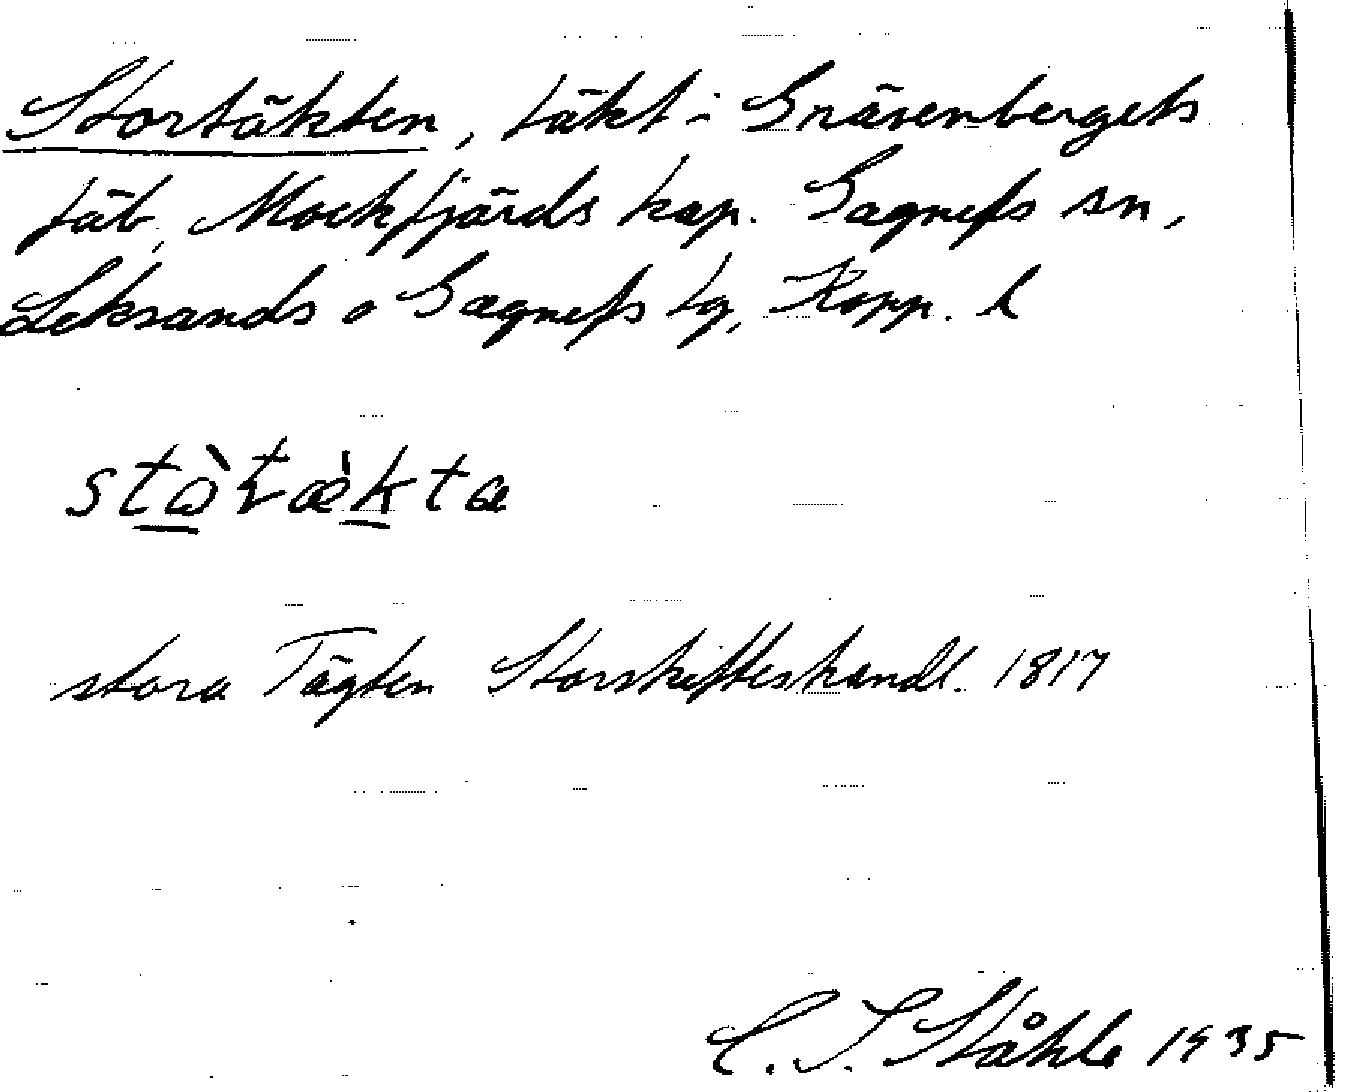 Stortäkten, täkt i Gräsenbergets
fäb, Mockfjärds kap. Gagnefs sn,
Leksands o Gagnefs tg, Kopp. l
stora Tägten Storskifteshandl. 1817
C. I. Ståhle 1935